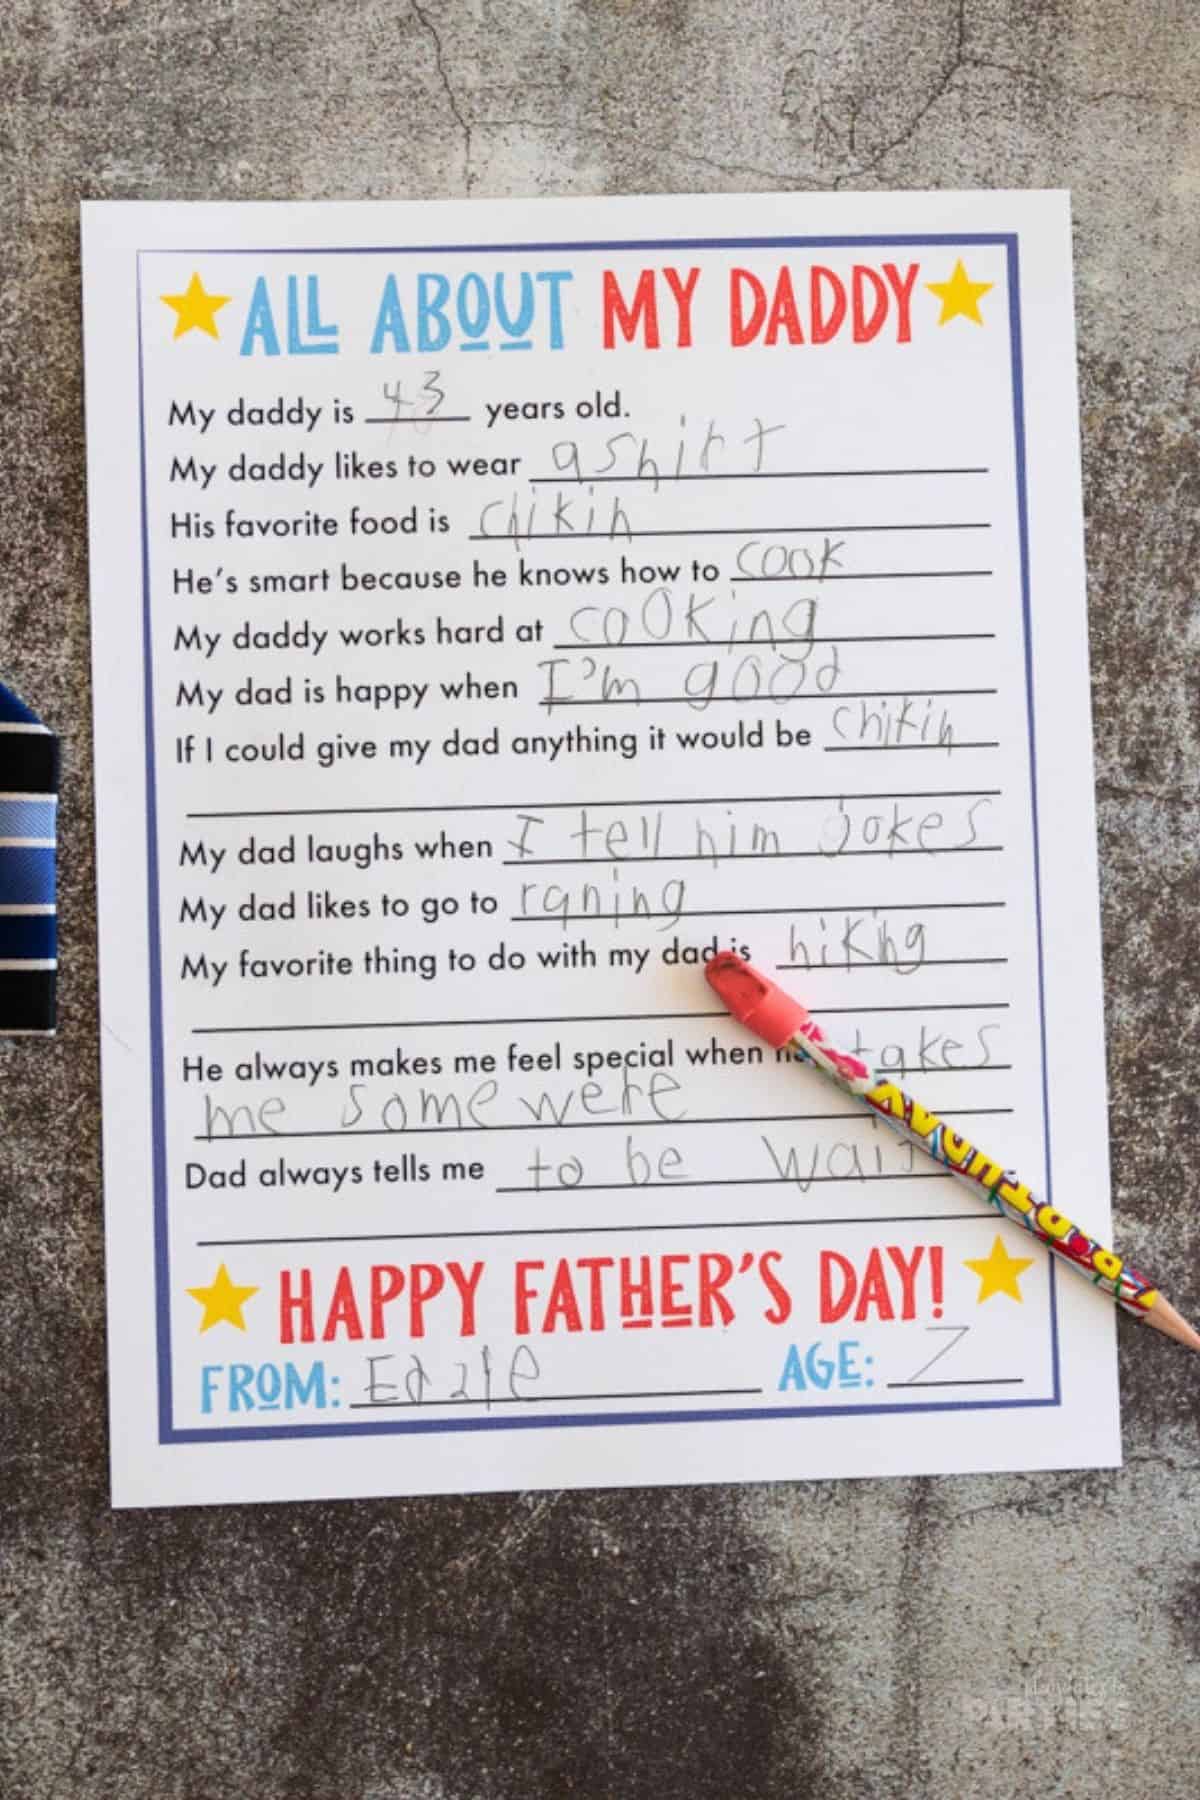 ALL ABOUT MY DADDY
My daddy is 43 years old.
My daddy likes to wear a shirt
His favorite food is chikin
He's smart because he knows how to cook
My daddy works hard at cooking
My dad is happy when I'm good
If I could give my dad anything it would be chikin
My dad laughs when I tell him jokes
My dad likes to go to raning
My favorite thing to do with my dad is hiking
He always makes me feel special when he takes
me somewere
Dad always tells me to be
HAPPY FATHER'S DAY!
FROM: AGE: 7
PARTIES